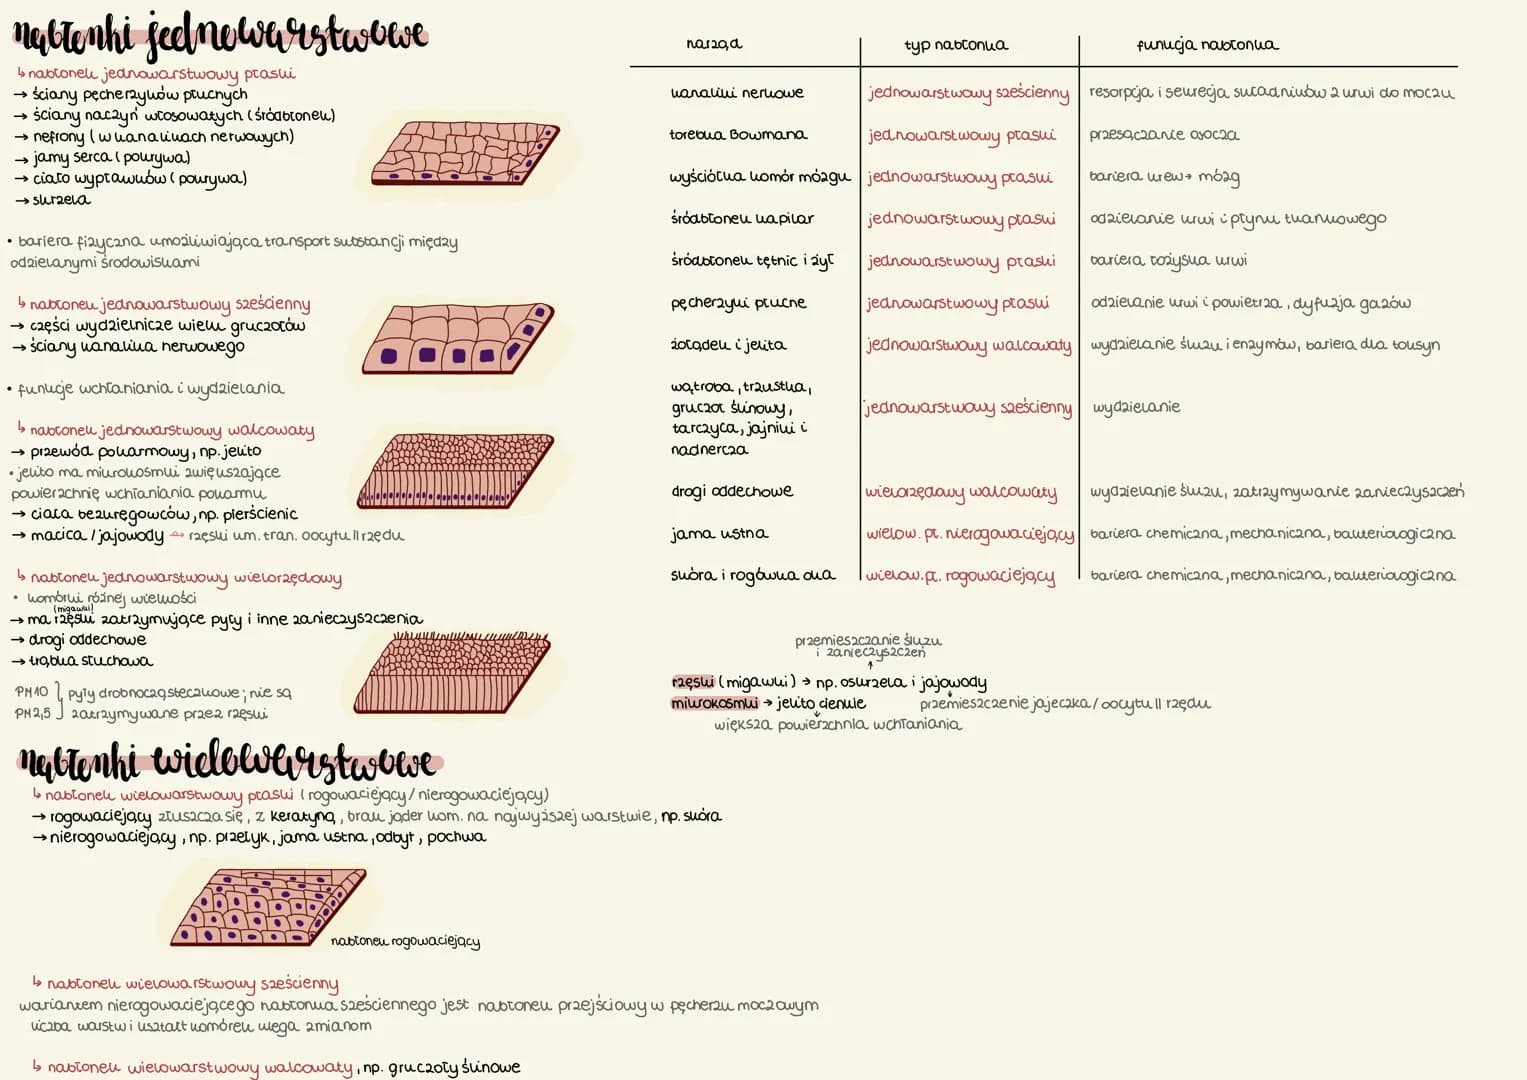 nabłonki jednowarstwowe
↳ nabłonek jednowarstwowy płaski
→ ściany pęcherzyków płucnych
→ ściany naczyń włosowatych (śródbłonek)
→ nefrony (w kanalikach nerkowych)
→ jamy serca (pokrywa)
→ ciało wyprawków (pokrywa)
→ skrzela
• bariera fizyczna umożliwiająca transport substancji między
odzielanymi środowiskami
↳ nabłonek jednowarstwowy sześcienny
→ części wydzielnicze wielu gruczołów
→ ściany kanalika nerkowego
• funkcje wchłaniania i wydzielania
↳ nabłonek jednowarstwowy walcowaty
→ przewód pokarmowy, np. jelito
• jelito ma mikrokosmki zwiększające
powierzchnię wchłaniania pokarmu
→ ciała bezkręgowców, np. pierścienic
→ macica / jajowody → rzęski um. tran. oocytu II rzędu
↳ nabłonek jednowarstwowy wielorzędowy
• komórki różnej wielkości
(migawki)
→ ma rzęski zatrzymujące pyły i inne zanieczyszczenia
→ drogi oddechowe
→ trąbka słuchowa
PM 10 } pyły drobnocząsteczkowe; nie są
PM 2,5 } zatrzymywane przez rzęski
narząd | typ nabłonka | funkcja nabłonka
kanaliki nerkowe | jednowarstwowy sześcienny | resorpcja i sekrecja składników z krwi do moczu
torebka Bowmana | jednowarstwowy płaski | przesączanie osocza
wyściółka komór mózgu | jednowarstwowy płaski | bariera krew→ mózg
śródbłonek kapilar | jednowarstwowy płaski | odzielanie krwi i płynu tkankowego
śródbłonek tętnic i żył | jednowarstwowy płaski | bariera łożyska krwi
pęcherzyki płucne | jednowarstwowy płaski | odzielanie krwi i powietrza, dyfuzja gazów
żołądek i jelita | jednowarstwowy walcowaty | wydzielanie śluzu i enzymów, bariera dla toksyn
wątroba, trzustka,
gruczoł ślinowy, | jednowarstwowy sześcienny | wydzielanie
tarczyca, jajniki i
nadnercza
drogi oddechowe | wielorzędowy walcowaty | wydzielanie śluzu, zatrzymywanie zanieczyszczeń
jama ustna | wielow. pł. nierogowaciejący | bariera chemiczna, mechaniczna, bakteriologiczna
skóra i rogówka oka | wielow. pł. rogowaciejący | bariera chemiczna, mechaniczna, bakteriologiczna
przemieszczanie śluzu
i zanieczyszczeń
↑
rzęski (migawki) → np. oskrzela i jajowody
mikrokosmki → jelito cienkie
przemieszczenie jajeczka / oocytu II rzędu
większa powierzchnia wchłaniania
nabłonki wielowarstwowe
↳ nabłonek wielowarstwowy płaski (rogowaciejący / nierogowaciejący)
→ rogowaciejący złuszcza się, z keratyną, brak jąder kom. na najwyższej warstwie, np. skóra
→ nierogowaciejący, np. przełyk, jama ustna, odbyt, pochwa
nabłonek rogowaciejący
↳ nabłonek wielowarstwowy sześcienny
wariantem nierogowaciejącego nabłonka sześciennego jest nabłonek przejściowy w pęcherzu moczowym
liczba warstw i kształt komórek ulega zmianom
↳ nabłonek wielowarstwowy walcowaty, np. gruczoły ślinowe